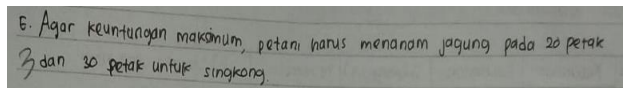 6. Agar keuntungan maksimum, petani harus menanam jagung pada 20 petak
3 dan 30 petak untuk singkong.